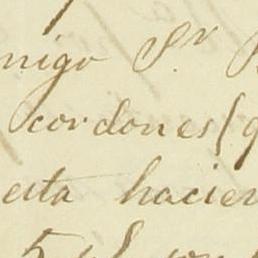 migo Sr.
cordones (q
esta hacien